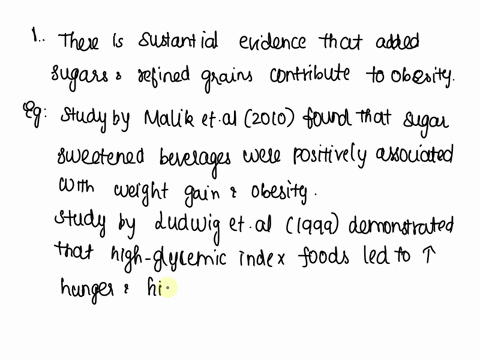 1.. There is sustantial evidence that added
sugars & refined grains contribute to obesity.
Eg: Study by Malik et.al (2010) found that sugar
sweetened beverages were positively associated
with weight gain & obesity.
Study by Ludwig et.al (1999) demonstrated
that high-glycemic index foods led to ↑
hunger & hi